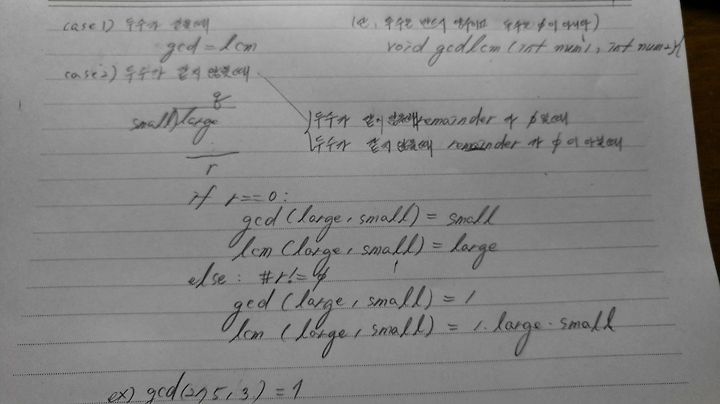 case 1) 두수가 같을때 (단, 두수는 반드시 양수이고 두수는 ϕ이 아니다)
gcd = lcm void gcdlcm (int num1, int num2){
case 2) 두수가 같지 않을때
q
small)large
두수가 같지 않을때 remainder 가 ϕ일때
두수가 같지 않을때 remainder 가 ϕ이 아닐때
r
if r==0:
gcd (large, small) = small
lcm (large, small) = large
else: #r!=ϕ
gcd (large, small) = 1
lcm (large, small) = 1·large·small
ex) gcd(2, 3) = 1